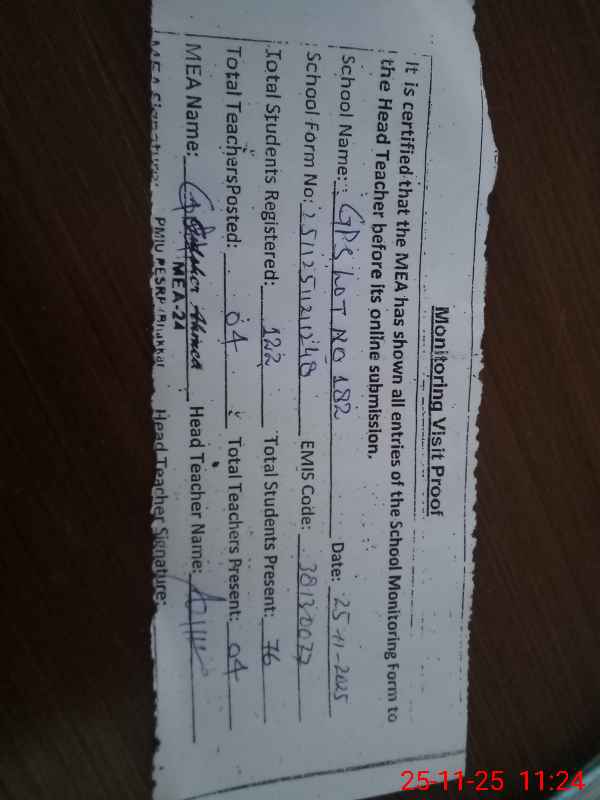 Monitoring Visit Proof
It is certified that the MEA has shown all entries of the School Monitoring Form to
the Head Teacher before its online submission.
School Name: GPS LOT NO 182 Date: 25-11-2025
School Form No: EMIS Code:
Total Students Registered: 122 Total Students Present: 76
Total Teachers Posted: 04 Total Teachers Present: 04
MEA Name: Ahmed Head Teacher Name:
MEA-24
MEA Signature: PMIU PESRP /Bhakkar Head Teacher Signature:
25-11-25 11:24